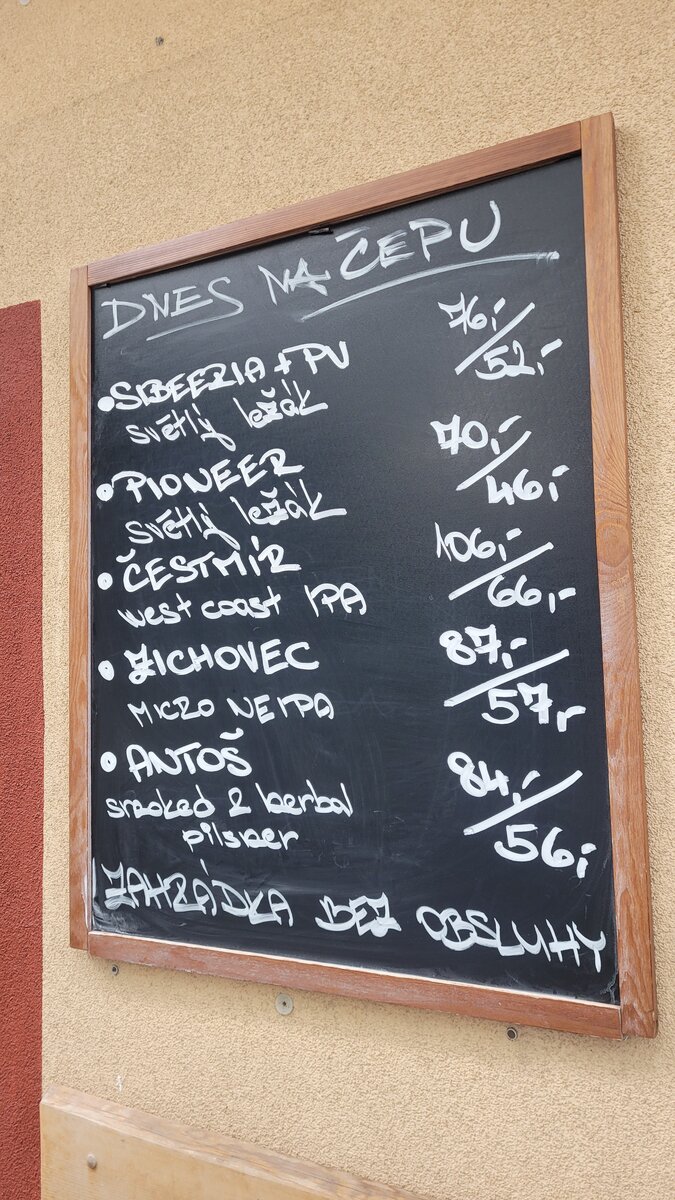 DNES NA ČEPU
• SIBEERIA + PU 76,-/52,-
světlý ležák
• PIONEER 70,-/46,-
světlý ležák
• ČESTMÍR 106,-/66,-
west coast IPA
• ZICHOVEC 87,-/57,-
MICRO NEIPA
• ANTOŠ 84,-/56,-
smoked & herbal
pilsner
! ZAHRÁDKA BEZ OBSLUHY